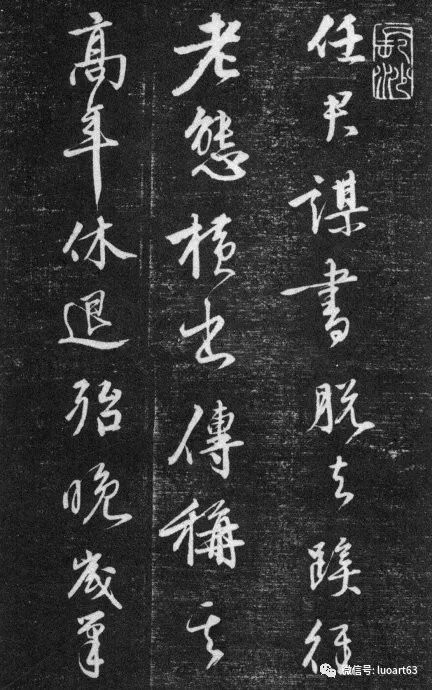 任君謀書脱去蹊徑
老態横出傳稱其
高年休退殆晚歲筆
微信号: luoart63